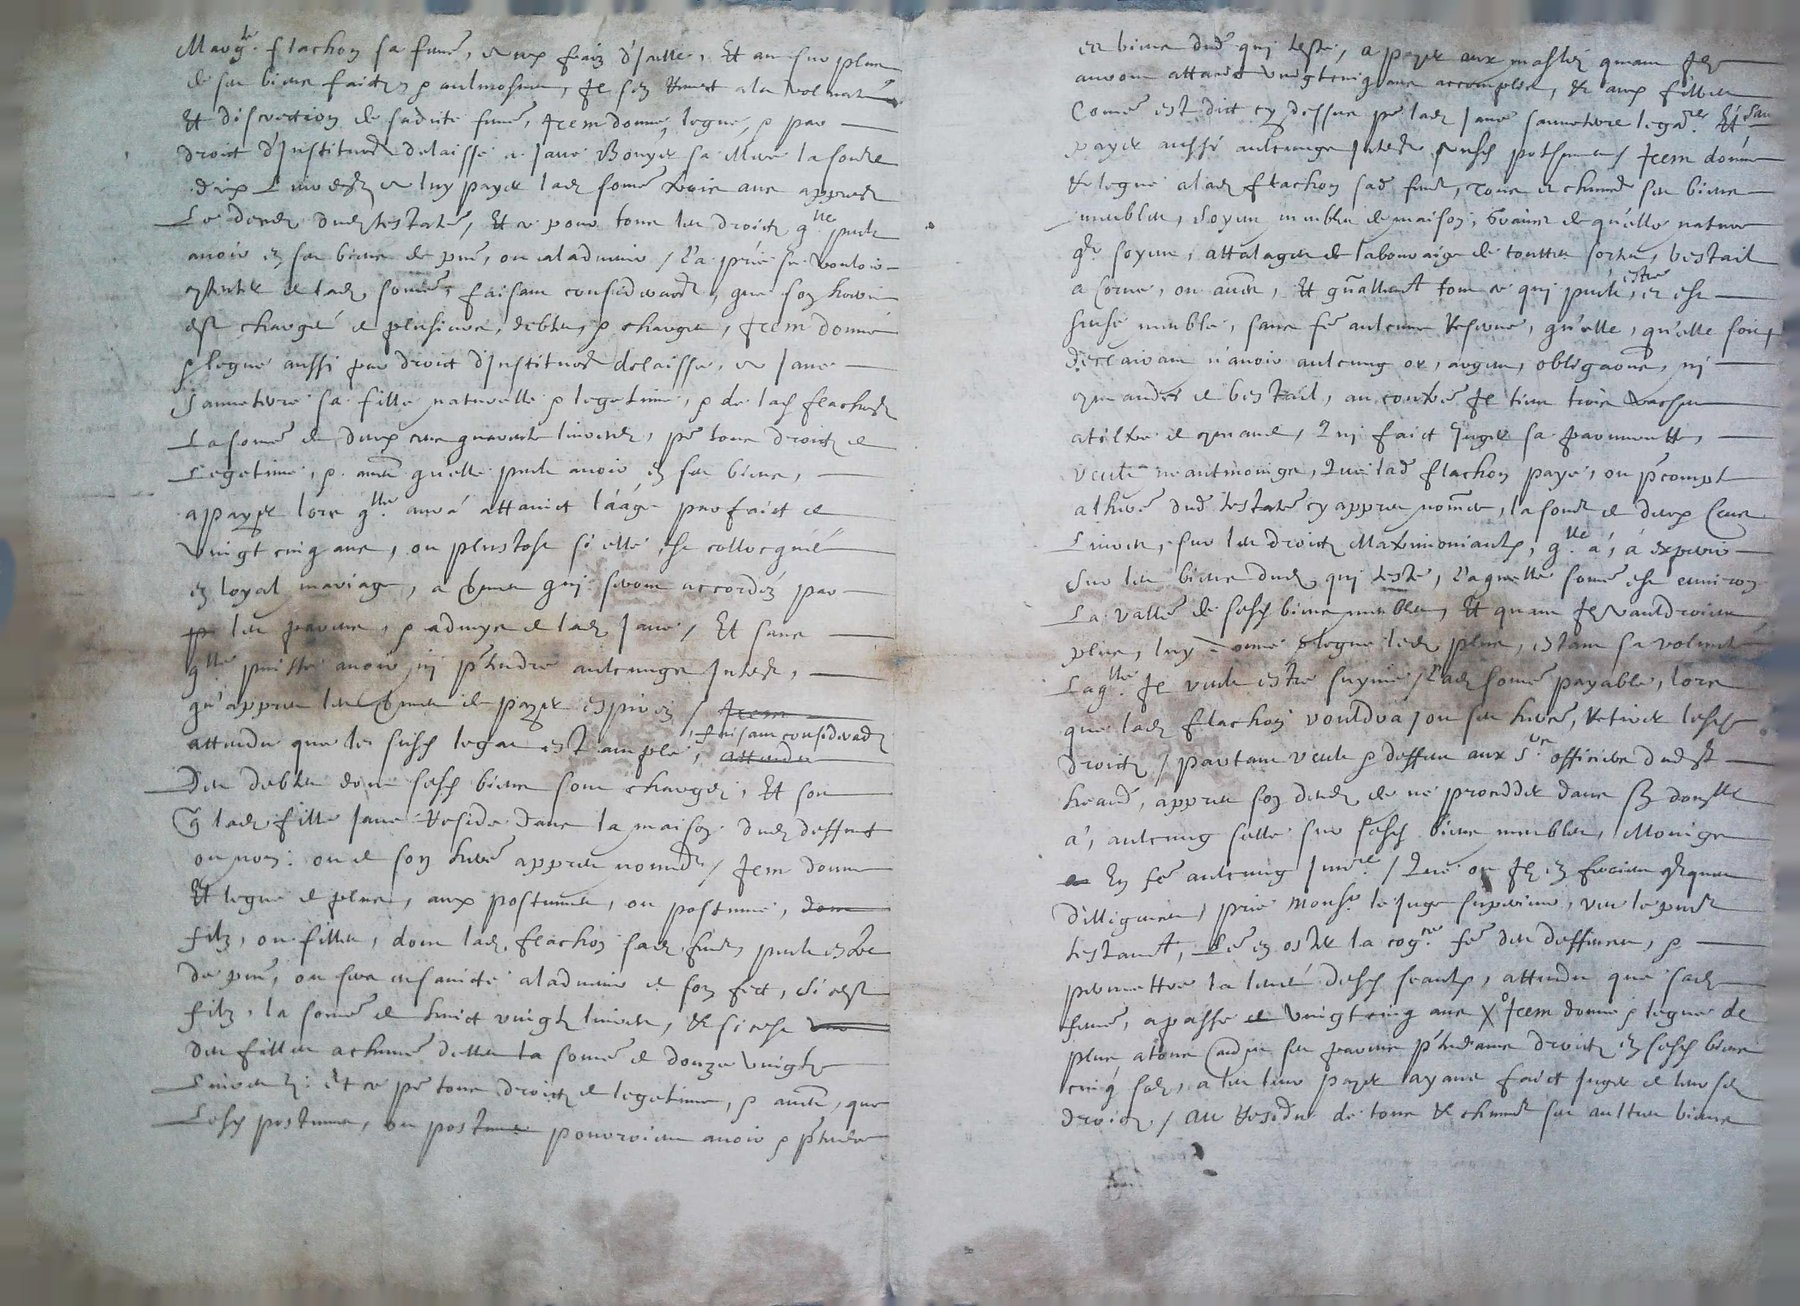 Marg.te flachon sa fame, et aux fraiz d'Icelle, Et au sur plus
de ses biens faictz p aulmosnes, Il s'en remect a la volunté
Et discrection de sadite fame, Item donne, legue, p par
droict d'Institu͠on delaisse a Jane Bouyer sa Mere la some
dix Livres et luy payer lad some trois ans appres
Le deces dud testateur, Et ce pour tous les droictz q.lle peult
avoir en ses biens de p͠nt, ou aladvenir / L'a prié se vouloir
contenter de lad somé, faisant considera͠on, que son hoirie
est chargée de plusieurs, debtes, p charges, Item donne
p legue aussi par droict d'Institu͠on delaisse, a Jane
Janneture sa fille naturelle p legetime, p de lad flachon
La somé de deux cens quarante livres, p͠r tous droictz de
Legetime, p aultre qu'elle peult avoir en ses biens,
a payer lors q.lle aurá attainct l'áage parfaict de
vingt cinq ans, ou plustost si elle est collocquée
en loyal mariage, a termes qui seront accordéz par
les parens, p advys de lad Jane / Et sans
q.lle puisse avoir ni p͠tendre aulcungz Interest,
qu'appres les termes de payer expirez / Item
attendu que le susd legat est ample, faisant considera͠on attendu
Des debtes dont sesd biens sont chargez, Et soit
q lad fille Jane reside dans la maison dud deffunt
ou non: ou de son heré appres nommé / Item donne
Et legue de plus, aux postumes, ou postume, dont
filz, ou filles, dont lad flachon sad fame peult estre
de p͠nt, ou sera enfaincte aladvenir de son fect, si c'est
filz, la somé de huict vingtz livres, et si c'est une
des filles a chune d'elles la somé de douze vingtz
Livres: Et ce p͠r tous droictz de legetime, p aultre, que
Lesd postumes, ou postume pouroient avoir p p͠tendre
en biens dud qui teste, a payer aux masles quant Ilz
auront attainct vingtcinq ans accomplis, et aux filles
Come est dict cy dessus p͠r lad Jane Janneture lega.re Et sans
payer aussi aulcungz Interest ausd postumes / Item donne
et legue a lad flachon sad fame, tous et chuns ses biens
meubles, soyent meubles de maison, grains de quelle nature
q͠z soyent, attalages de labouraige de touttes sortes, bestail
a corne, ou aultre, Et g͠nallement tout ce qui peult estre en est
censé meuble, sans fe͠ aulcune reserve, qu'elle, qu'elle soit,
declairant n'avoir aulcung or, argent, obliga͠ons, ni
comandes de bestail, au contre Il tient trois vaches
a tiltre de comande, Qui faict Juger sa pauvretté,
veult neantmoingz, Que lad flachon paye, ou p͠compte
a l'heré dud testateur cy appres nommé, la some de deux Cens
Livres, sur les droictz Matrimoniaulx, q.lle á, á exiger
sur les biens dud qui teste, Laquelle somé est environ
La valleur de sesd biens meubles, Et quant Ilz vauldroient
plus, luy donne p legue led plus, estant sa volunté
Laq.lle Il veult estre suyvie / lad somé payable, lors
que lad flachon vouldra, ou ses heres, retirer lesd
droictz / partant veult p deffent aux s.rs officiers dud st
heand, appres son deces de ne proceder dans sa domplle
á, aulcung sellé sur sesd biens meubles, Moings
En fe͠ aulcung Inv.re / Que ou Ilz en feroient quelques
dilligences, prie Mons.r le Juge superieur, veu le p͠nt
testament, Leur en oster la cog.ce fe͠ des deffences, p
permettre la levée desd seaulx, attendu que sad
fame, a passé vingtcinq ans X° Item donne p legue de
plus a tous aultres ses parens p͠tendans droictz en sesd biens
cinq solz, a leur payer ayant faict Juger de leursd
droictz / au residu de tous et chuns ses aultres biens